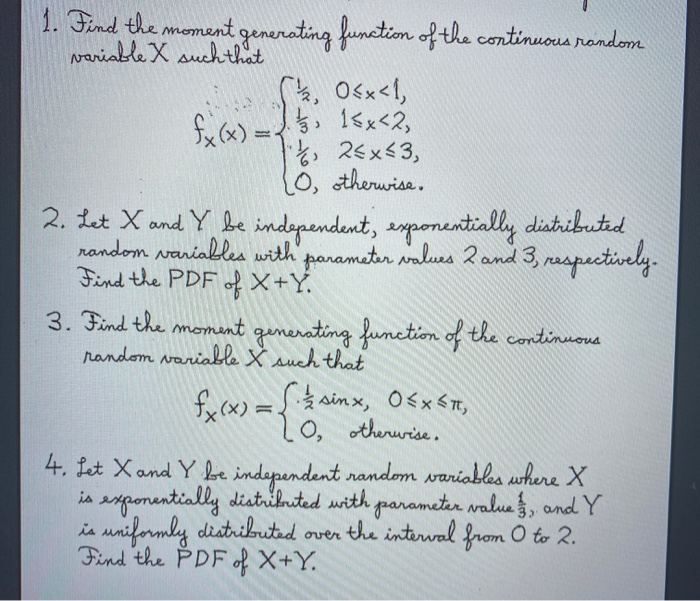 1. Find the moment generating function of the continuous random
variable X such that
f_X(x) = { 1/2, 0≤x<1,
1/3, 1≤x<2,
1/6, 2≤x≤3,
0, otherwise.
2. Let X and Y be independent, exponentially distributed
random variables with parameter values 2 and 3, respectively.
Find the PDF of X+Y.
3. Find the moment generating function of the continuous
random variable X such that
f_X(x) = { 1/2 sin x, 0≤x≤π,
0, otherwise.
4. Let X and Y be independent random variables where X
is exponentially distributed with parameter value 1/3, and Y
is uniformly distributed over the interval from 0 to 2.
Find the PDF of X+Y.